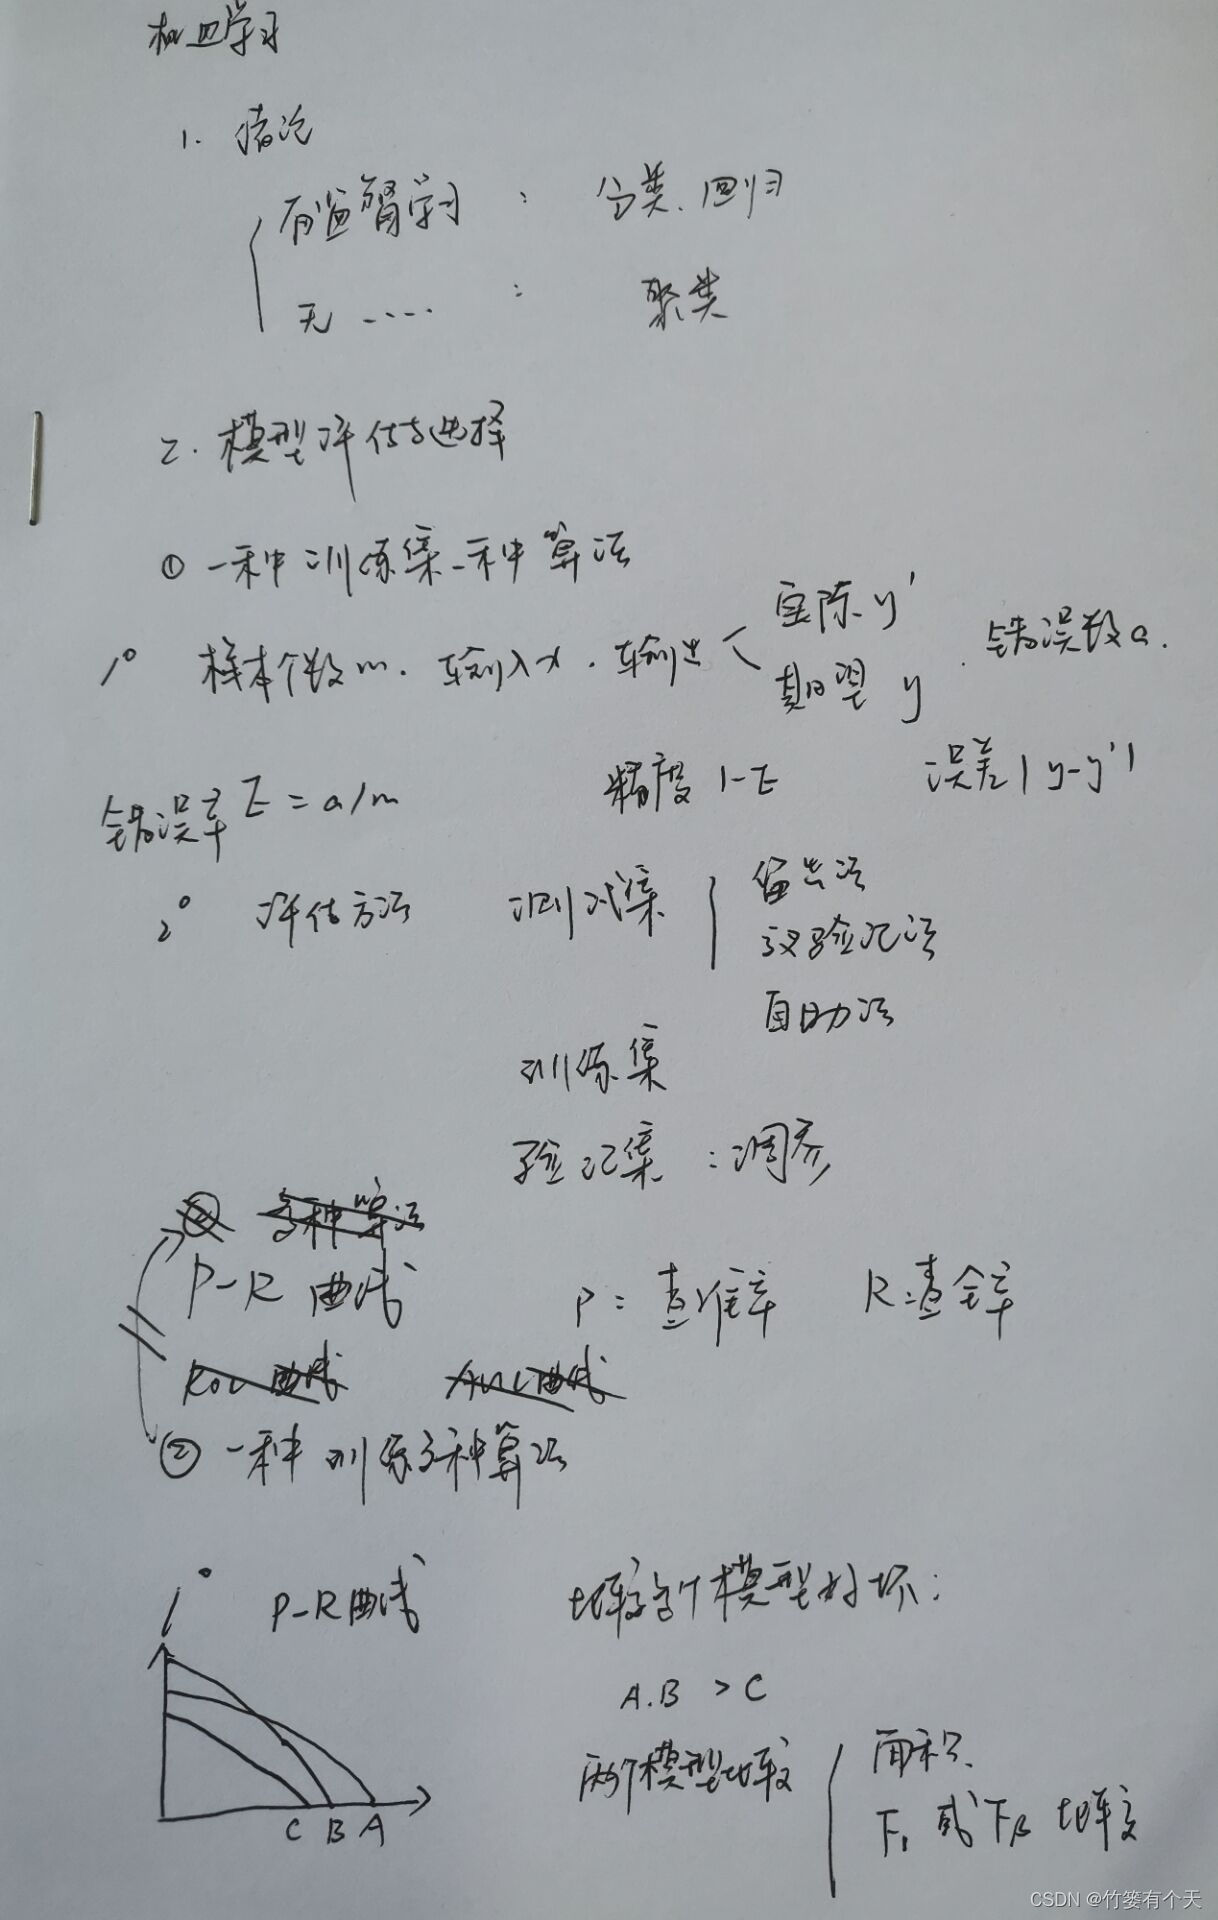 机器学习
1. 绪论
有监督学习 : 分类、回归
无 ---- : 聚类
2. 模型评估与选择
① 一种训练集一种算法
1° 样本个数m. 输入x. 输出 实际y' 期望y . 错误数a.
错误率E=a/m 精度1-E 误差|y-y'|
2° 评估方法 测试集 留出法
交叉验证法
自助法
训练集
验证集:调参
② 多种算法
P-R曲线 P:查准率 R:查全率
ROC曲线 AUC曲线
② 一种训练多种算法
1° P-R曲线 比较各个模型好坏:
A.B > C
两个模型比较 面积.
F1 或 Fβ 比较
C B A
CSDN @竹篓有个天